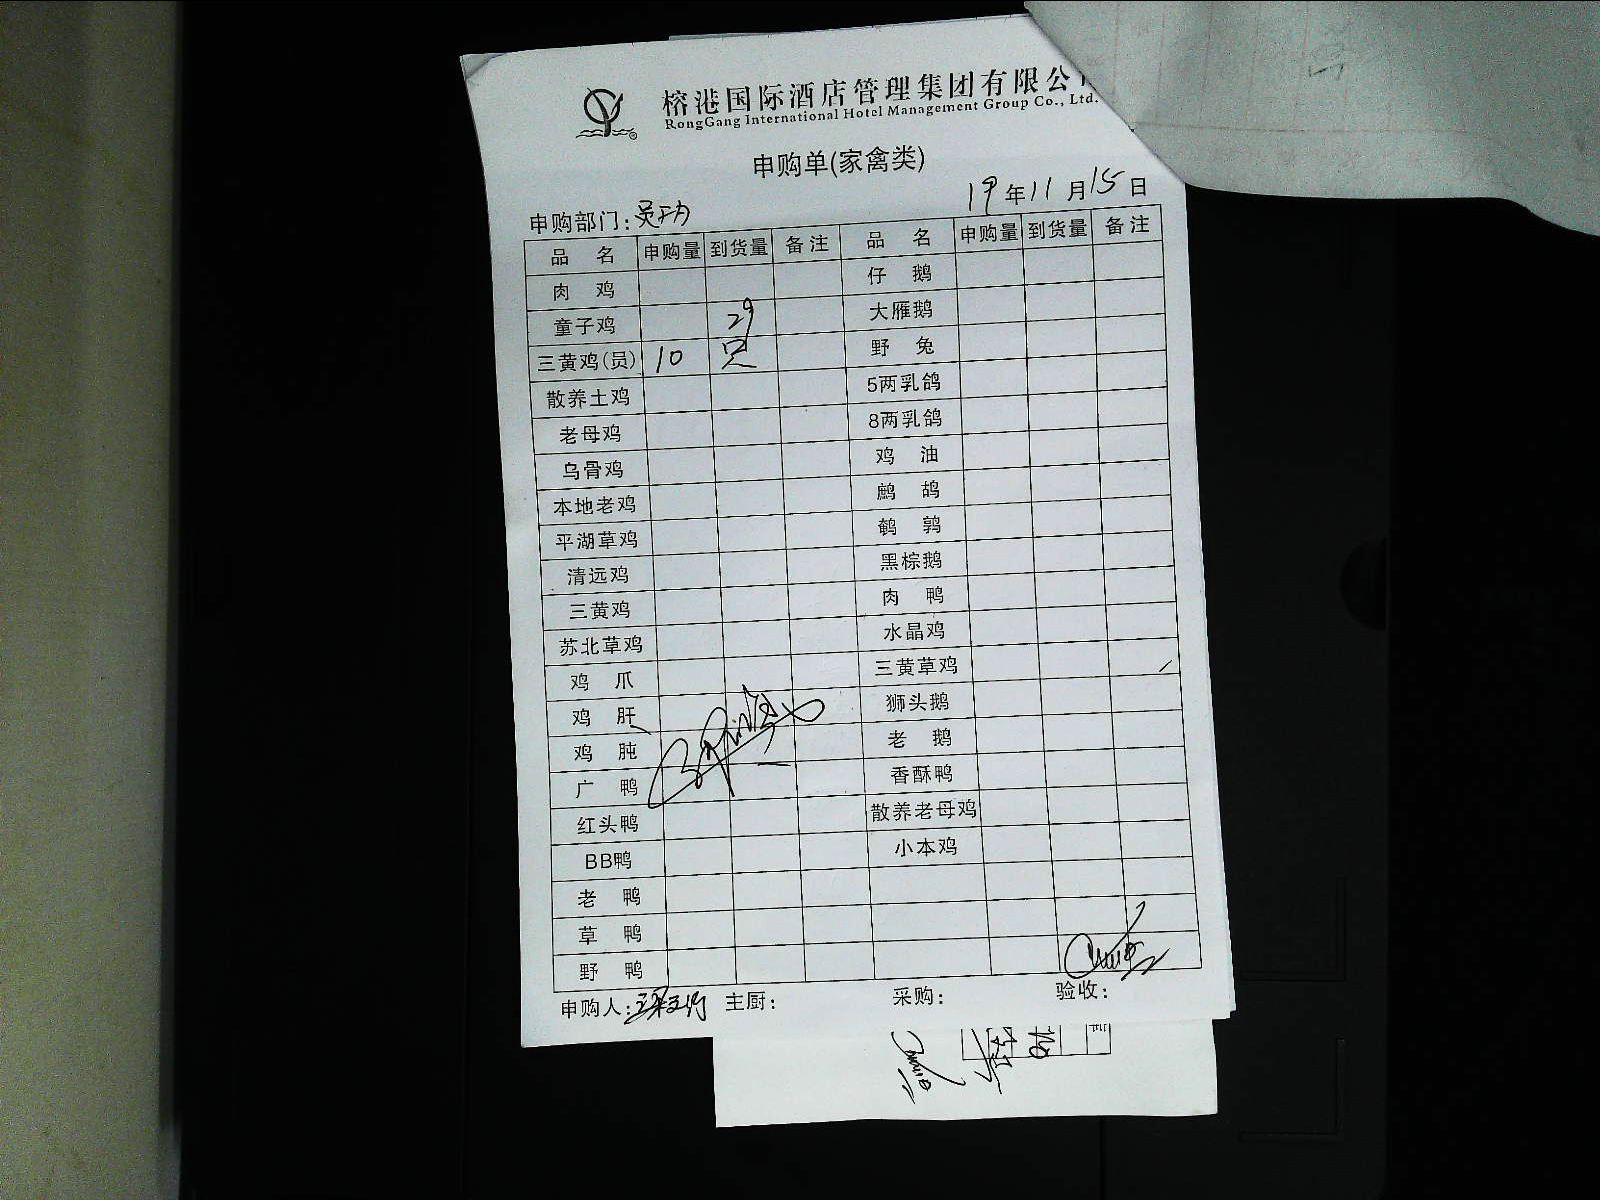 榕港国际酒店管理集团有限公
RongGang International Hotel Management Group Co., Ltd.
申购单(家禽类)
19年11月15日
申购部门:
品名 申购量 到货量 备注 品名 申购量 到货量 备注
肉鸡 仔鹅
童子鸡 29 大雁鹅
三黄鸡(员) 10 只 野兔
散养土鸡 5两乳鸽
老母鸡 8两乳鸽
乌骨鸡 鸡油
本地老鸡 鹧鸪
平湖草鸡 鹌鹑
清远鸡 黑棕鹅
三黄鸡 肉鸭
苏北草鸡 水晶鸡
鸡爪 三黄草鸡
鸡肝 狮头鹅
鸡肫 老鹅
广鸭 香酥鸭
红头鸭 散养老母鸡
BB鸭 小本鸡
老鸭
草鸭
野鸭
申购人: 主厨: 采购: 验收: